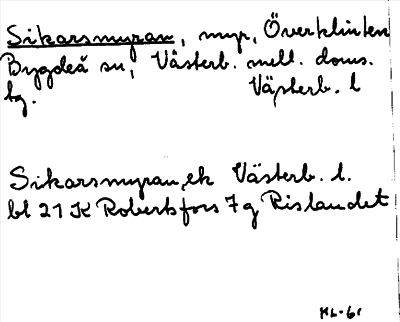 Sikarsmyran, myr, Överklinten
Bygdeå sn, Västerb. mell. doms.
lg. Västerb. l
Sikarsmyran, ek Västerb. l.
bl 21 K Robertsfors 7 g Rislandet
HL-61